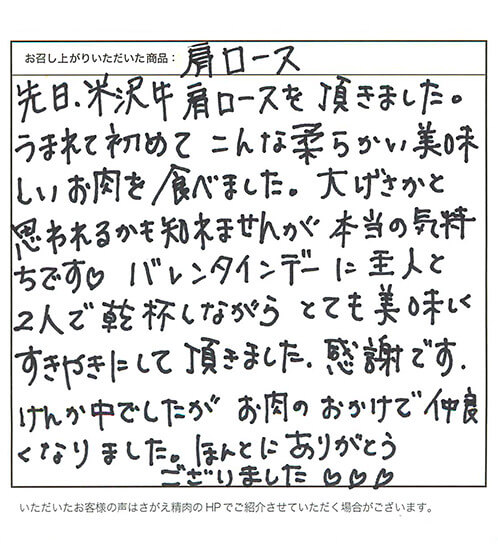 お召し上がりいただいた商品：肩ロース
先日、米沢牛肩ロースを頂きました。
うまれて初めてこんな柔らかい美味
しいお肉を食べました。大げさかと
思われるかも知れませんが本当の気持
ちです♡ バレンタインデーに主人と
2人で乾杯しながらとても美味しく
すきやきにして頂きました。感謝です。
けんか中でしたがお肉のおかげで仲良
くなりました。ほんとにありがとう
ございました♡♡♡
いただいたお客様の声はさがえ精肉のHPでご紹介させていただく場合がございます。